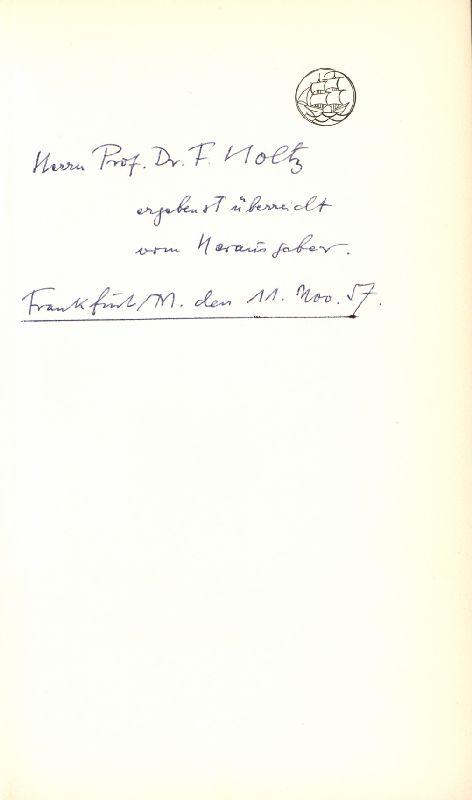 Herrn Prof. Dr. F. Holtz
ergebenst überreicht
vom Herausgeber.
Frankfurt/M. den 11. Nov. 57.